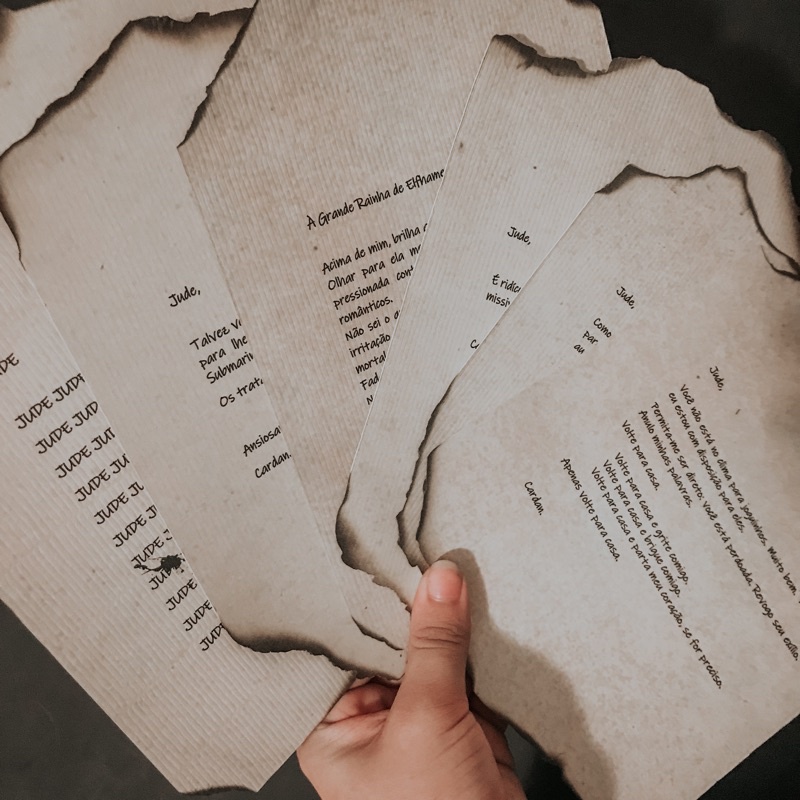 JUDE
JUDE JUDE
JUDE JUD
JUDE JU
JUDE JU
JUDE JU
JUDE J
JUDE
JUDE
JUDE
JUDE
Jude,
Talvez
para lhe
Submari
Os trat
Ansiosa
Cardan.
A Grande Rainha de Elfhame
Acima de mim, brilha
Olhar para ela
pressionada
românticos.
Não sei o
irritação
mortal
Jude,
É
Jude,
Como
par
au
Jude,
Você não está no clima para joguinhos. Muito bem.
eu estou com disposição para eles.
Permita-me ser direto: você está perdoada. Revogo seu exílio.
Anulo minhas palavras.
Volte para casa.
Volte para casa e grite comigo.
Volte para casa e brigue comigo.
Volte para casa e parta meu coração, se for preciso.
Apenas volte para casa.
Cardan.